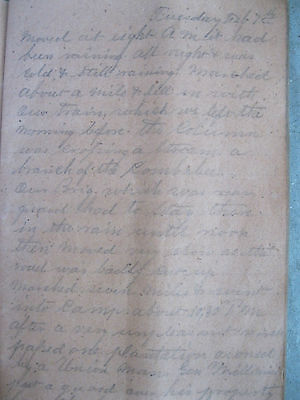 Tuesday Feb 7th
Moved at eight A M it had
been raining all night & was
cold & still raining. Marched
about a mile & fell in with
our train, which we left the
morning before. the column
was crossing a stream a
branch of the Combahee.
Our Brig. which was rear
guard had to stay there
in the rain until noon
then moved very slow as the
road was badly cut up
Marched seven miles & went
into Camp about 10,30 P M
after a very unpleasant
passed one plantation owned
by a Union man. Gen
put a guard over his property